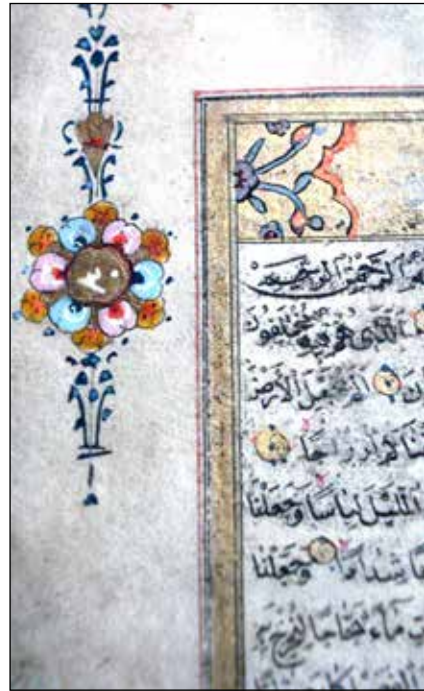 الرَّحْمٰنِ الرَّحِيْمِ
الَّذِي هُمْ فِيهِ مُخْتَلِفُونَ
اَلَمْ نَجْعَلِ الْاَرْضَ
اَزْوَاجًا
الَّيْلَ لِبَاسًا وَجَعَلْنَا
شِدَادًا وَجَعَلْنَا
مَاءً ثَجَّاجًا لِنُخْرِجَ بِهِ